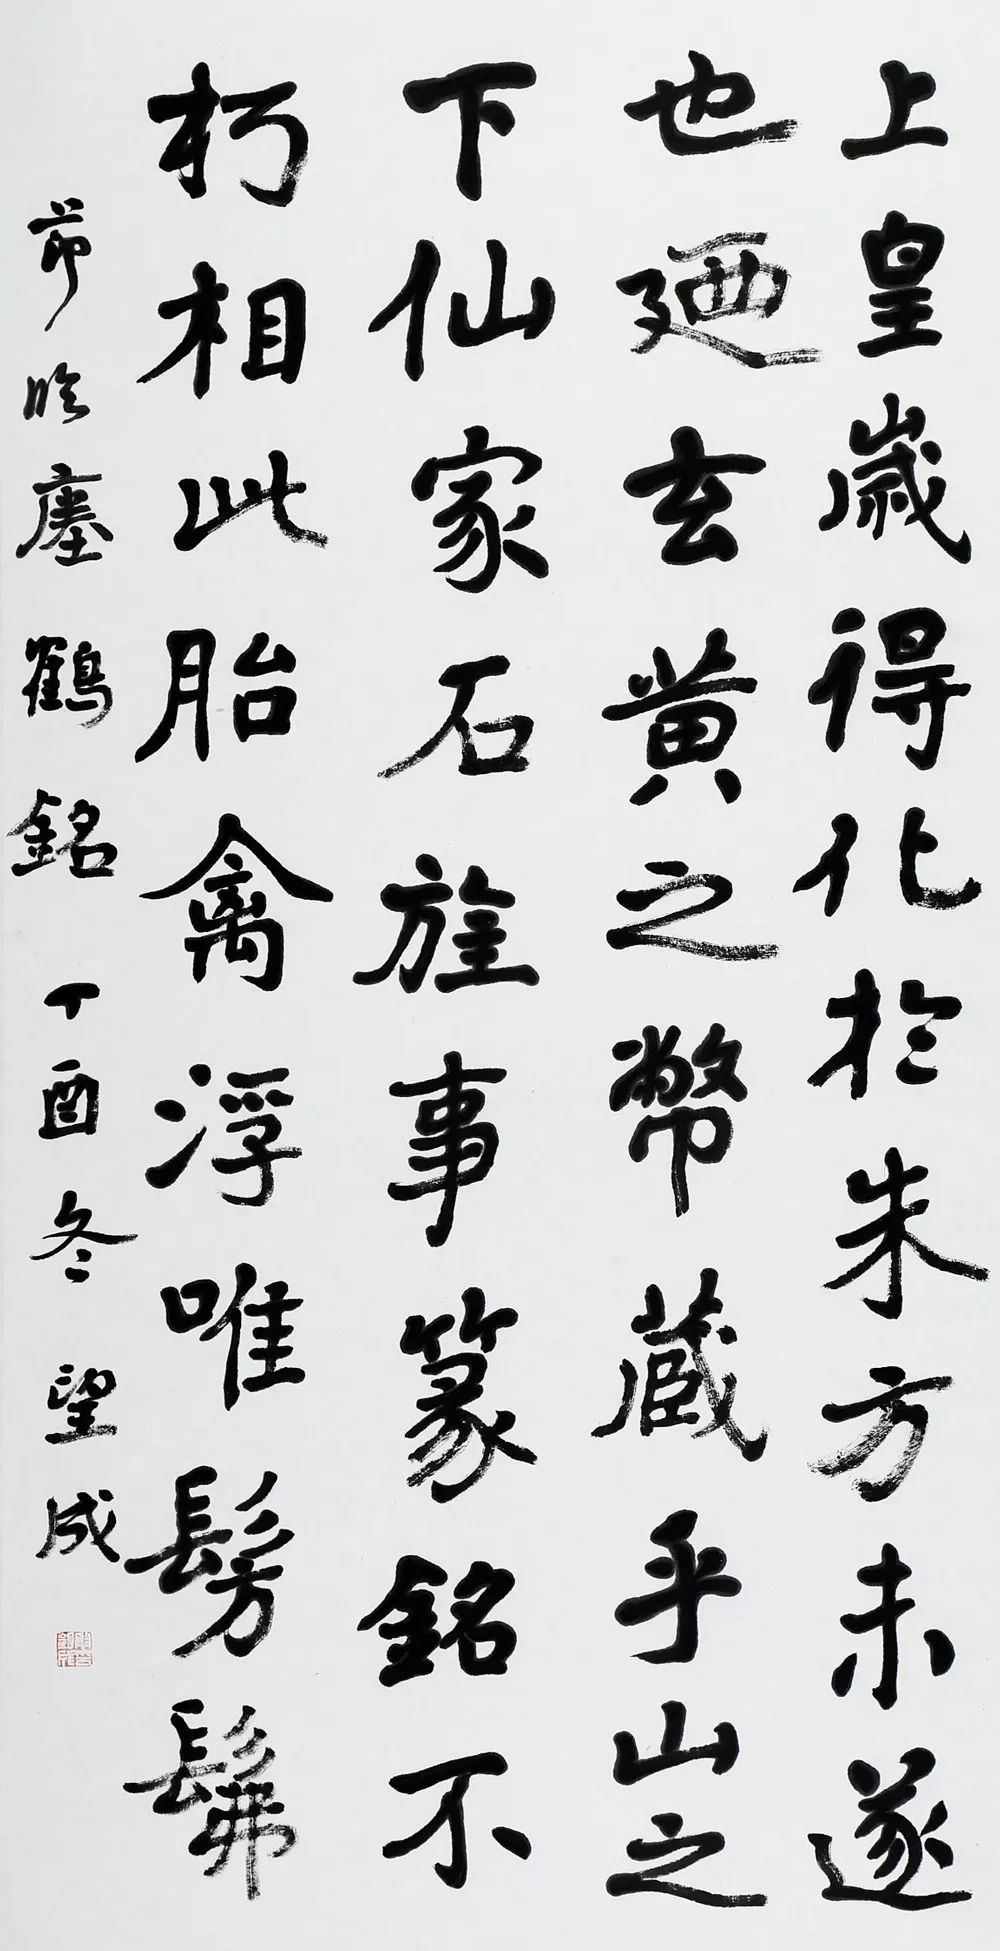 上皇歲得化於朱方未遂
也廼玄黄之幣蔵乎山之
下仙家石旌事篆銘不
朽相此胎禽浮唯髣髴
節临瘗鶴銘丁酉冬望成